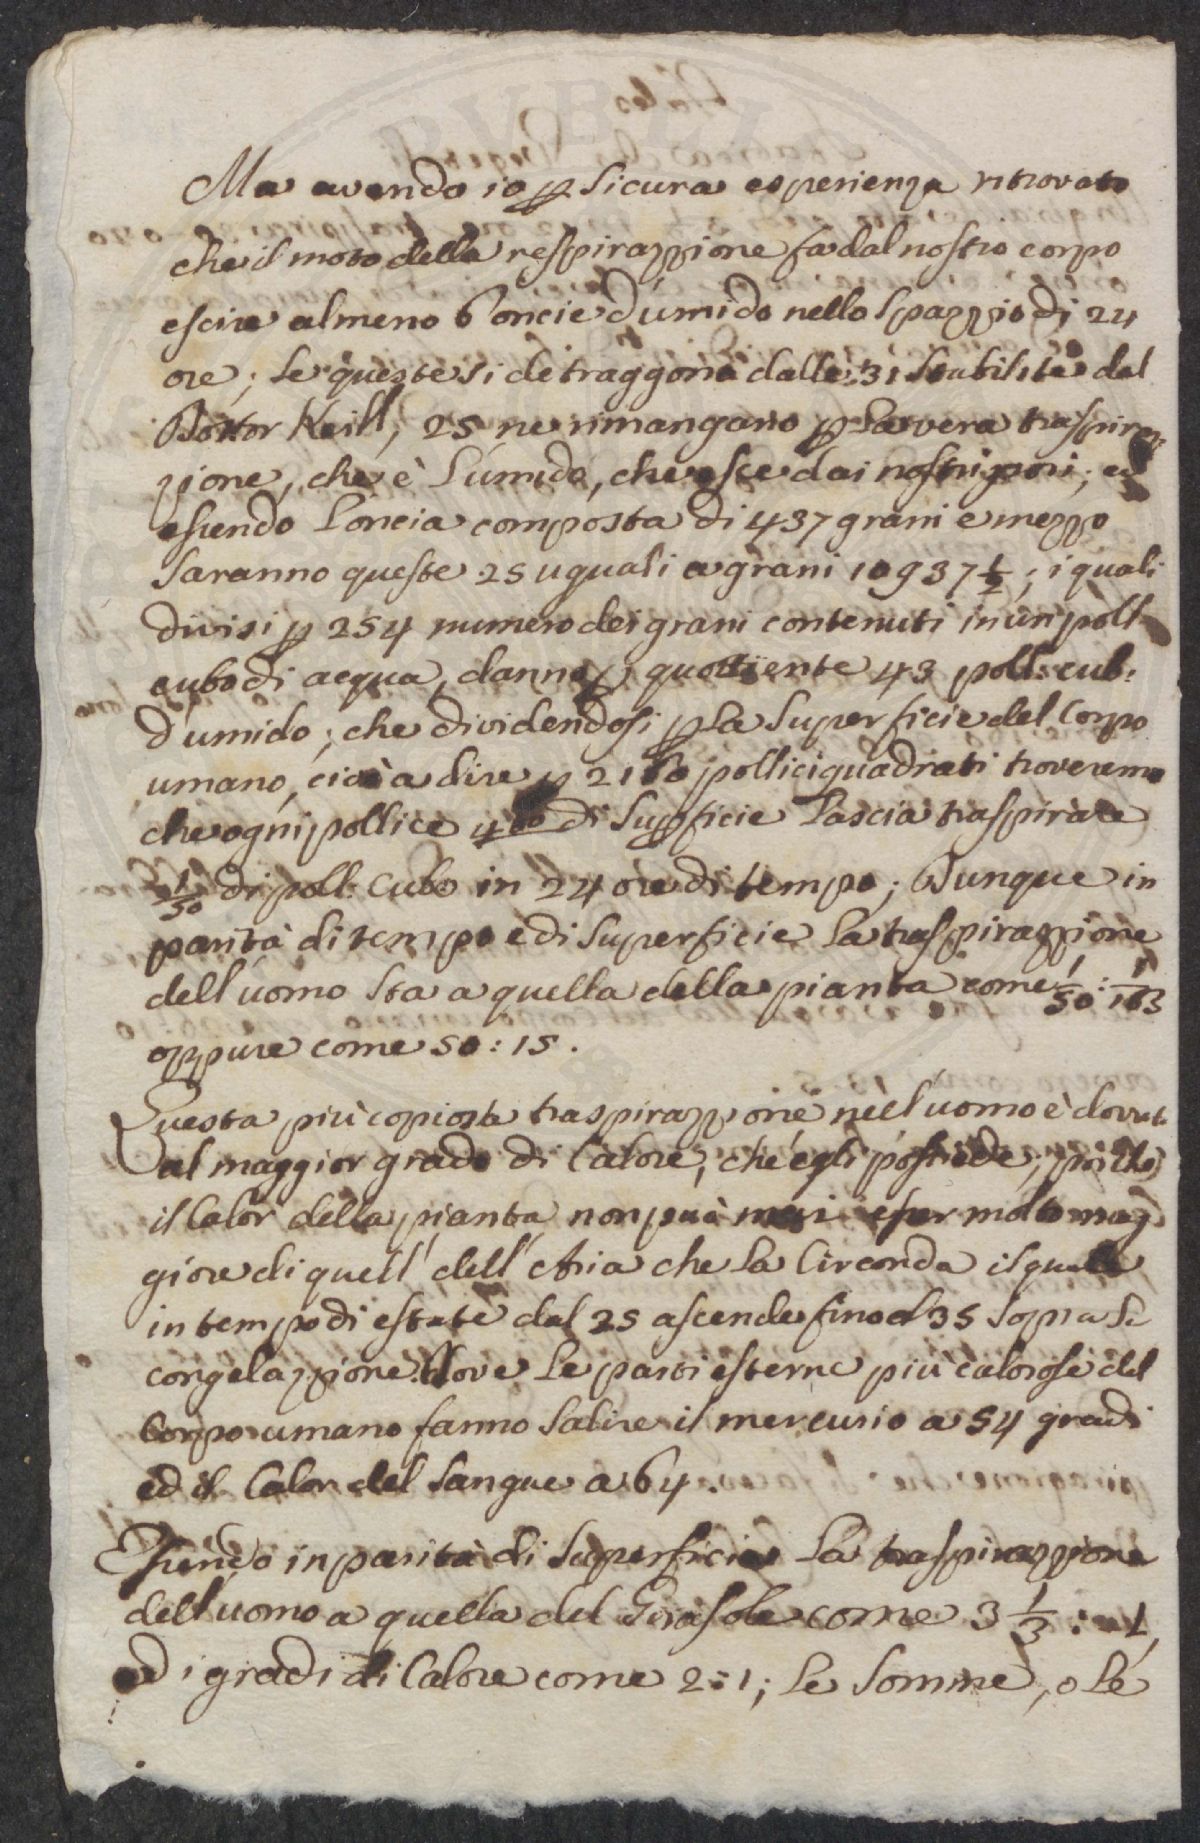 Ma avendo io p sicura esperienza ritrovato
che il moto della respirazzione fa dal nostro corpo
escire almeno 6 oncie d'umido nello spazzio di 24
ore; se queste si detraggono dalle 31 stabilite dal
Dottor Keill, 25 ne rimangano p la vera traspiraz-
zione, che è l'umido, che esce dai nostri pori; ed
essendo l'oncia composta di 437 grani e mezzo
saranno queste 25 uguali a grani 10937 1/2; i quali
divisi p 254 numero dei grani contenuti in un poll:
cubo di acqua, danno p quottiente 43 poll: cub:
d'umido; che dividendosi p la superficie del Corpo
umano, cioè a dire p 2160 pollici quadrati troveremo
che ogni pollice di supficie lascia traspirare
1/50 di poll: cubo in 24 ore di tempo; Dunque in
parità di tempo e di superficie la traspirazzione
dell'uomo sta a quella della pianta come 1/50 : 1/163
oppure come 50 : 15.
Questa più copiosa traspirazzione nell'uomo è dovuta
al maggior grado di Calore, che egli possiede, poiche
il Calor della pianta non può mai esser molto mag
giore di quell' dell' Aria che la Circonda il quale
in tempo di estate dal 25 ascende fino al 35 sopra la
congelazzione. Dove le parti esterne più calorose del
Corpo umano fanno salire il mercurio a 54 gradi
ed il Calor del sangue a 64.
Essendo in parità di superficie la traspirazzione
dell'uomo a quella del Girasole come 3 1/3 : 1,
ed i gradi di Calore come 2 : 1; le somme, o le